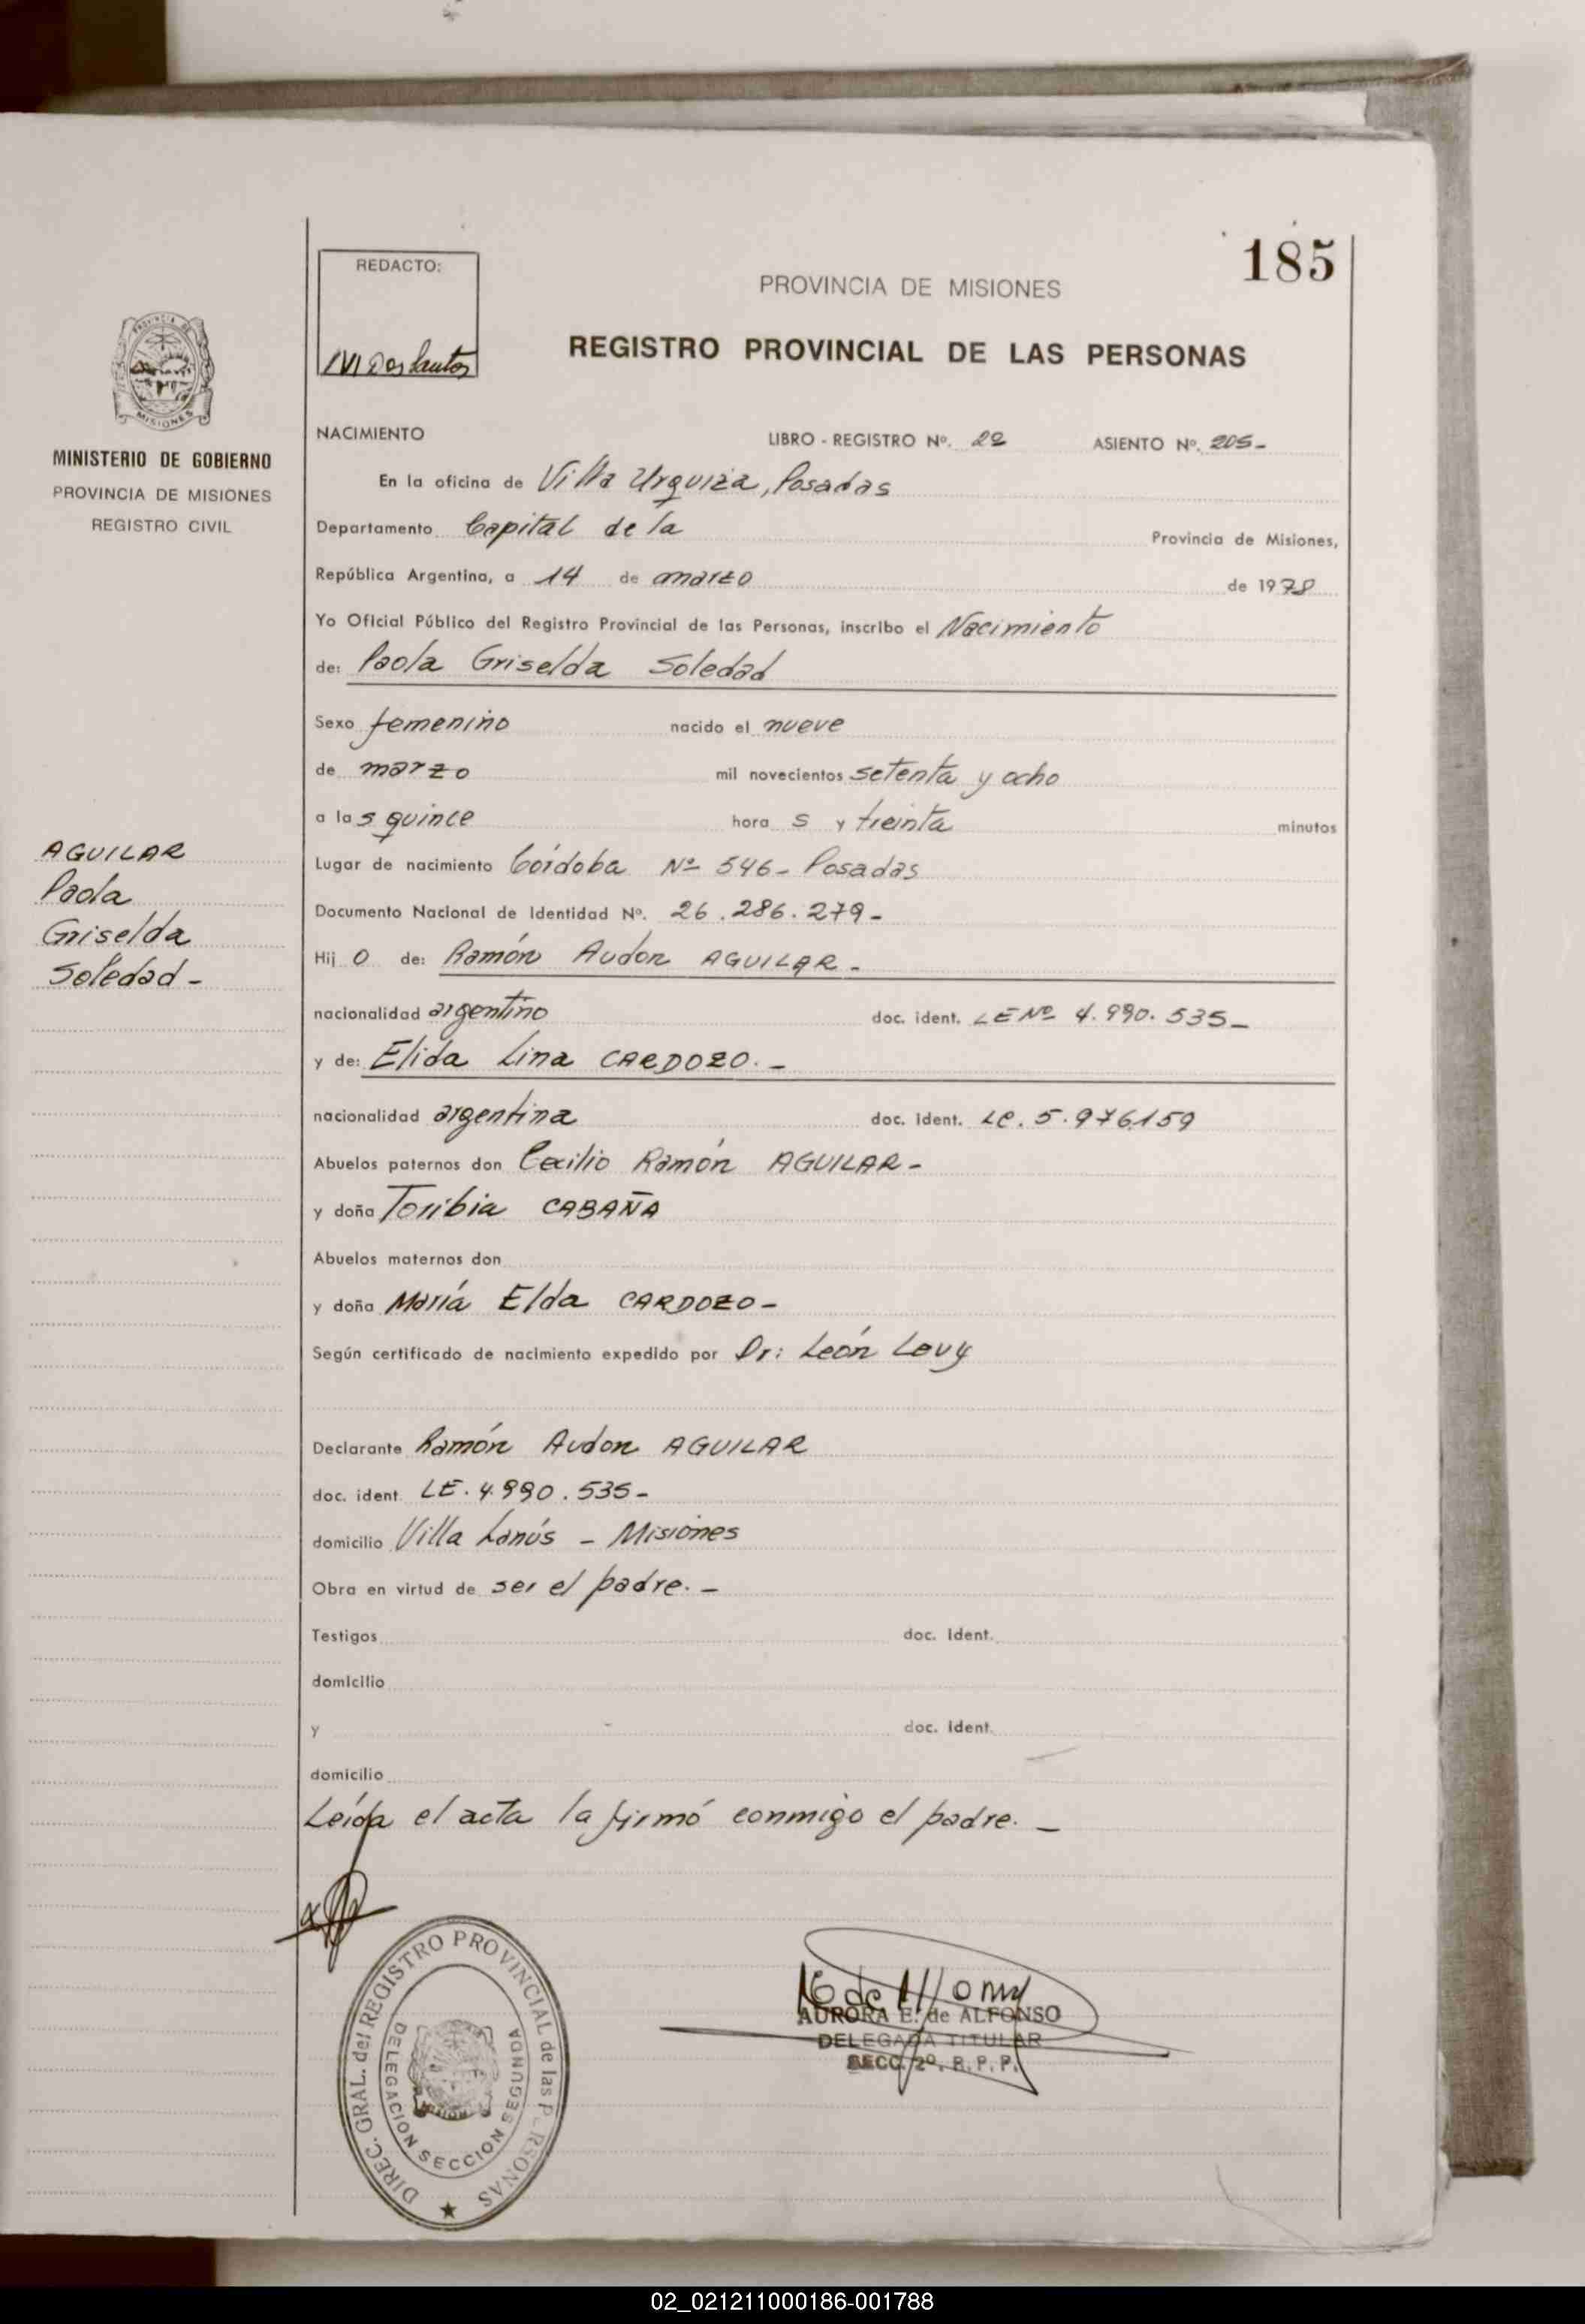 185
REDACTO:
PROVINCIA DE MISIONES
REGISTRO PROVINCIAL DE LAS PERSONAS
PROVINCIA DE
MISIONES
MINISTERIO DE GOBIERNO
PROVINCIA DE MISIONES
REGISTRO CIVIL
NACIMIENTO LIBRO - REGISTRO Nº. 22 ASIENTO Nº. 205-
En la oficina de Villa Urquiza, Posadas
Departamento Capital de la Provincia de Misiones,
República Argentina, a 14 de marzo de 1978
Yo Oficial Público del Registro Provincial de las Personas, inscribo el Nacimiento
de: Paola Griselda Soledad
Sexo femenino nacido el nueve
de marzo mil novecientos setenta y ocho
a las quince hora s y treinta minutos
AGUILAR
Paola
Griselda
Soledad -
Lugar de nacimiento Córdoba Nº 546- Posadas
Documento Nacional de Identidad Nº. 26.286.279-
Hij o de: Ramón Audon AGUILAR -
nacionalidad argentino doc. ident. LE Nº 4.990.535-
y de: Elida Lina CARDOZO. -
nacionalidad argentina doc. ident. LC. 5.976.159
Abuelos paternos don Cecilio Ramón AGUILAR -
y doña Toribia CABAÑA
Abuelos maternos don
y doña María Elda CARDOZO -
Según certificado de nacimiento expedido por Dr: León Levy
Declarante Ramón Audon AGUILAR
doc. ident. LE. 4.990.535-
domicilio Villa Lanús - Misiones
Obra en virtud de ser el padre. -
Testigos doc. ident.
domicilio
y doc. ident.
domicilio
Leída el acta la firmó conmigo el padre. -
DIREC. GRAL. del REGISTRO PROVINCIAL de las PERSONAS
DELEGACION SECCION SEGUNDA
AURORA E. de ALFONSO
DELEGADA TITULAR
SECC. 2º. R. P. P.
02_021211000186-001788